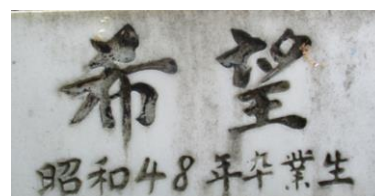 希望
昭和48年卒業生